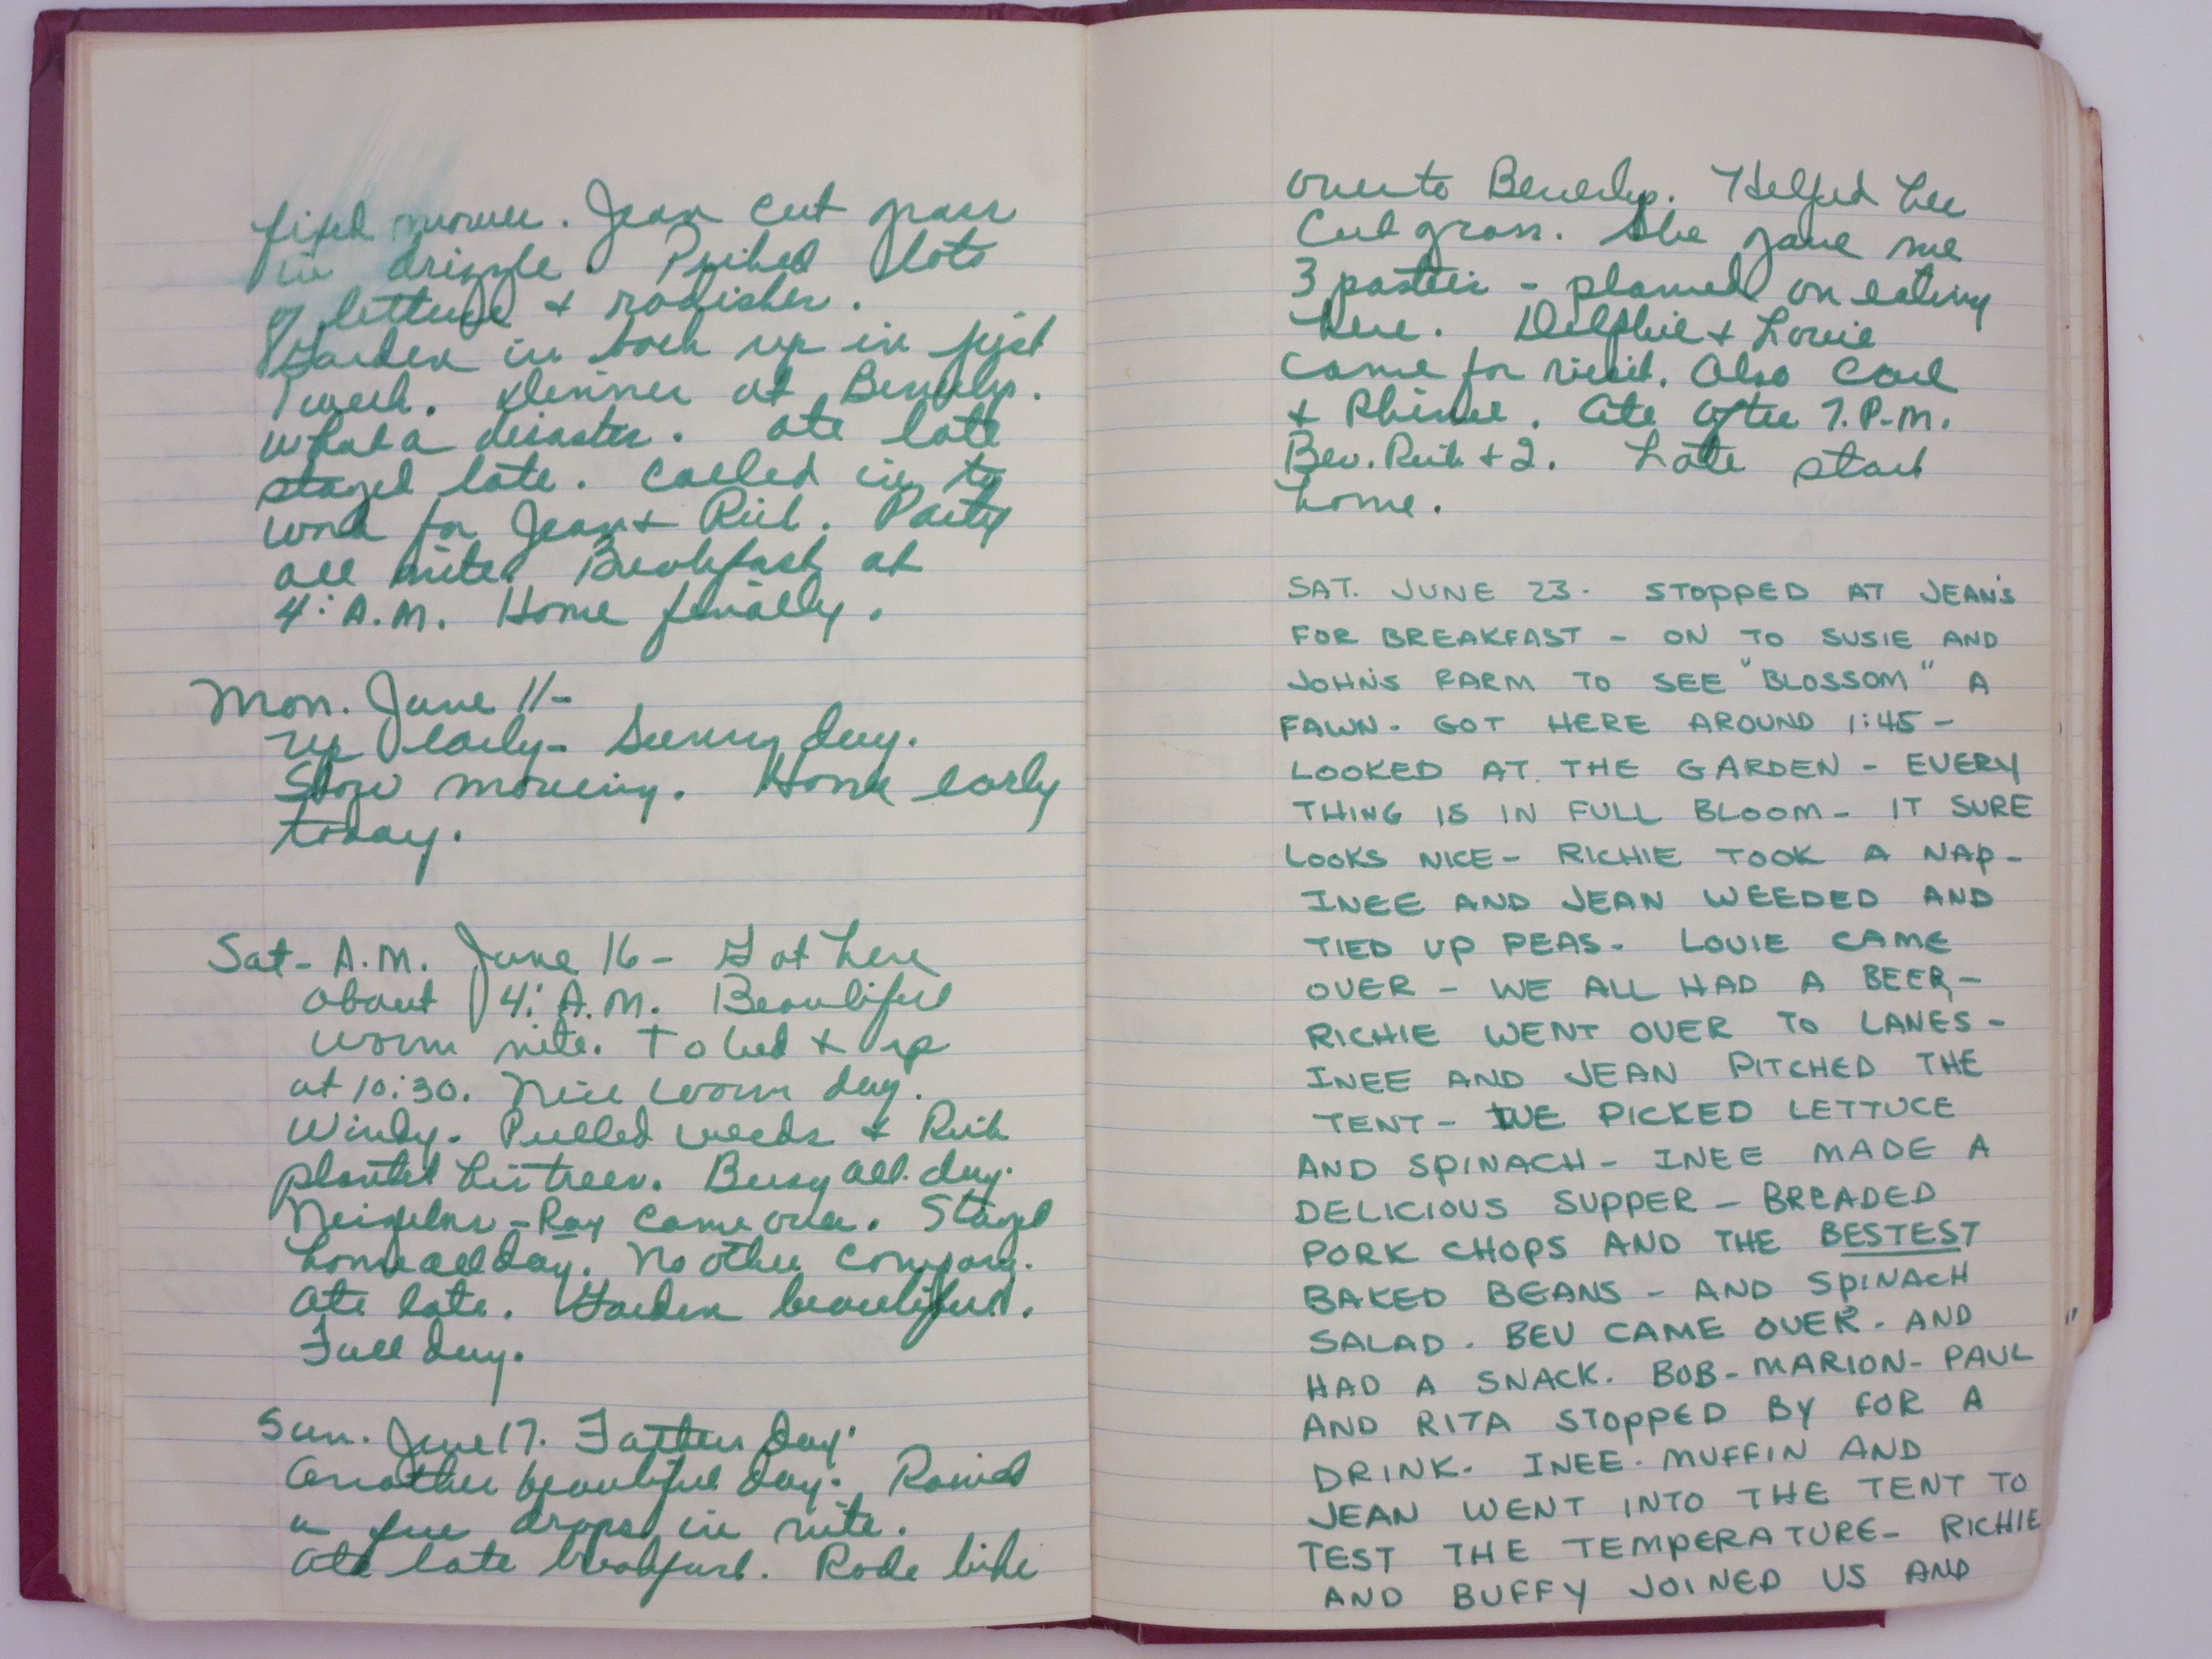 fixed mower. Jean cut grass
in drizzle. Picked lots
of lettuce & radishes.
Garden in back up in first
week. Dinner at Beverlys.
What a disaster. Ate late
stayed late. Called in to
work for Jean & Rich. Party
all nite. Breakfast at
4: A.M. Home finally.
Mon. June 11-
up early- Sunny day.
Slow moving. Home early
today.
Sat- A.M. June 16- Got here
about 4: A.M. Beautiful
warm nite. To bed & up
at 10:30. Nice warm day.
Windy. Pulled weeds & Rich
planted his trees. Busy all day.
Neighbor - Ray came over. Stayed
home all day. No other company.
Ate late. Garden beautiful.
Full day.
Sun. June 17. Fathers Day
Another beautiful day. Rained
a few drops in nite.
Ate late breakfast. Rode bike
over to Beverlys. Helped her
cut grass. She gave me
3 pasties - planned on eating
here. Delphie & Louie
came for visit. Also Carl
& . Ate after 7. P.M.
Bev. Rich + 2. Late start
home.
SAT. JUNE 23. STOPPED AT JEAN'S
FOR BREAKFAST - ON TO SUSIE AND
JOHN'S FARM TO SEE "BLOSSOM" A
FAWN. GOT HERE AROUND 1:45 -
LOOKED AT THE GARDEN - EVERY
THING IS IN FULL BLOOM - IT SURE
LOOKS NICE - RICHIE TOOK A NAP -
INEE AND JEAN WEEDED AND
TIED UP PEAS. LOUIE CAME
OVER - WE ALL HAD A BEER, -
RICHIE WENT OVER TO LANES -
INEE AND JEAN PITCHED THE
TENT - WE PICKED LETTUCE
AND SPINACH - INEE MADE A
DELICIOUS SUPPER - BREADED
PORK CHOPS AND THE BESTEST
BAKED BEANS - AND SPINACH
SALAD. BEV CAME OVER. AND
HAD A SNACK. BOB - MARION - PAUL
AND RITA STOPPED BY FOR A
DRINK. INEE. MUFFIN AND
JEAN WENT INTO THE TENT TO
TEST THE TEMPERATURE - RICHIE
AND BUFFY JOINED US AND